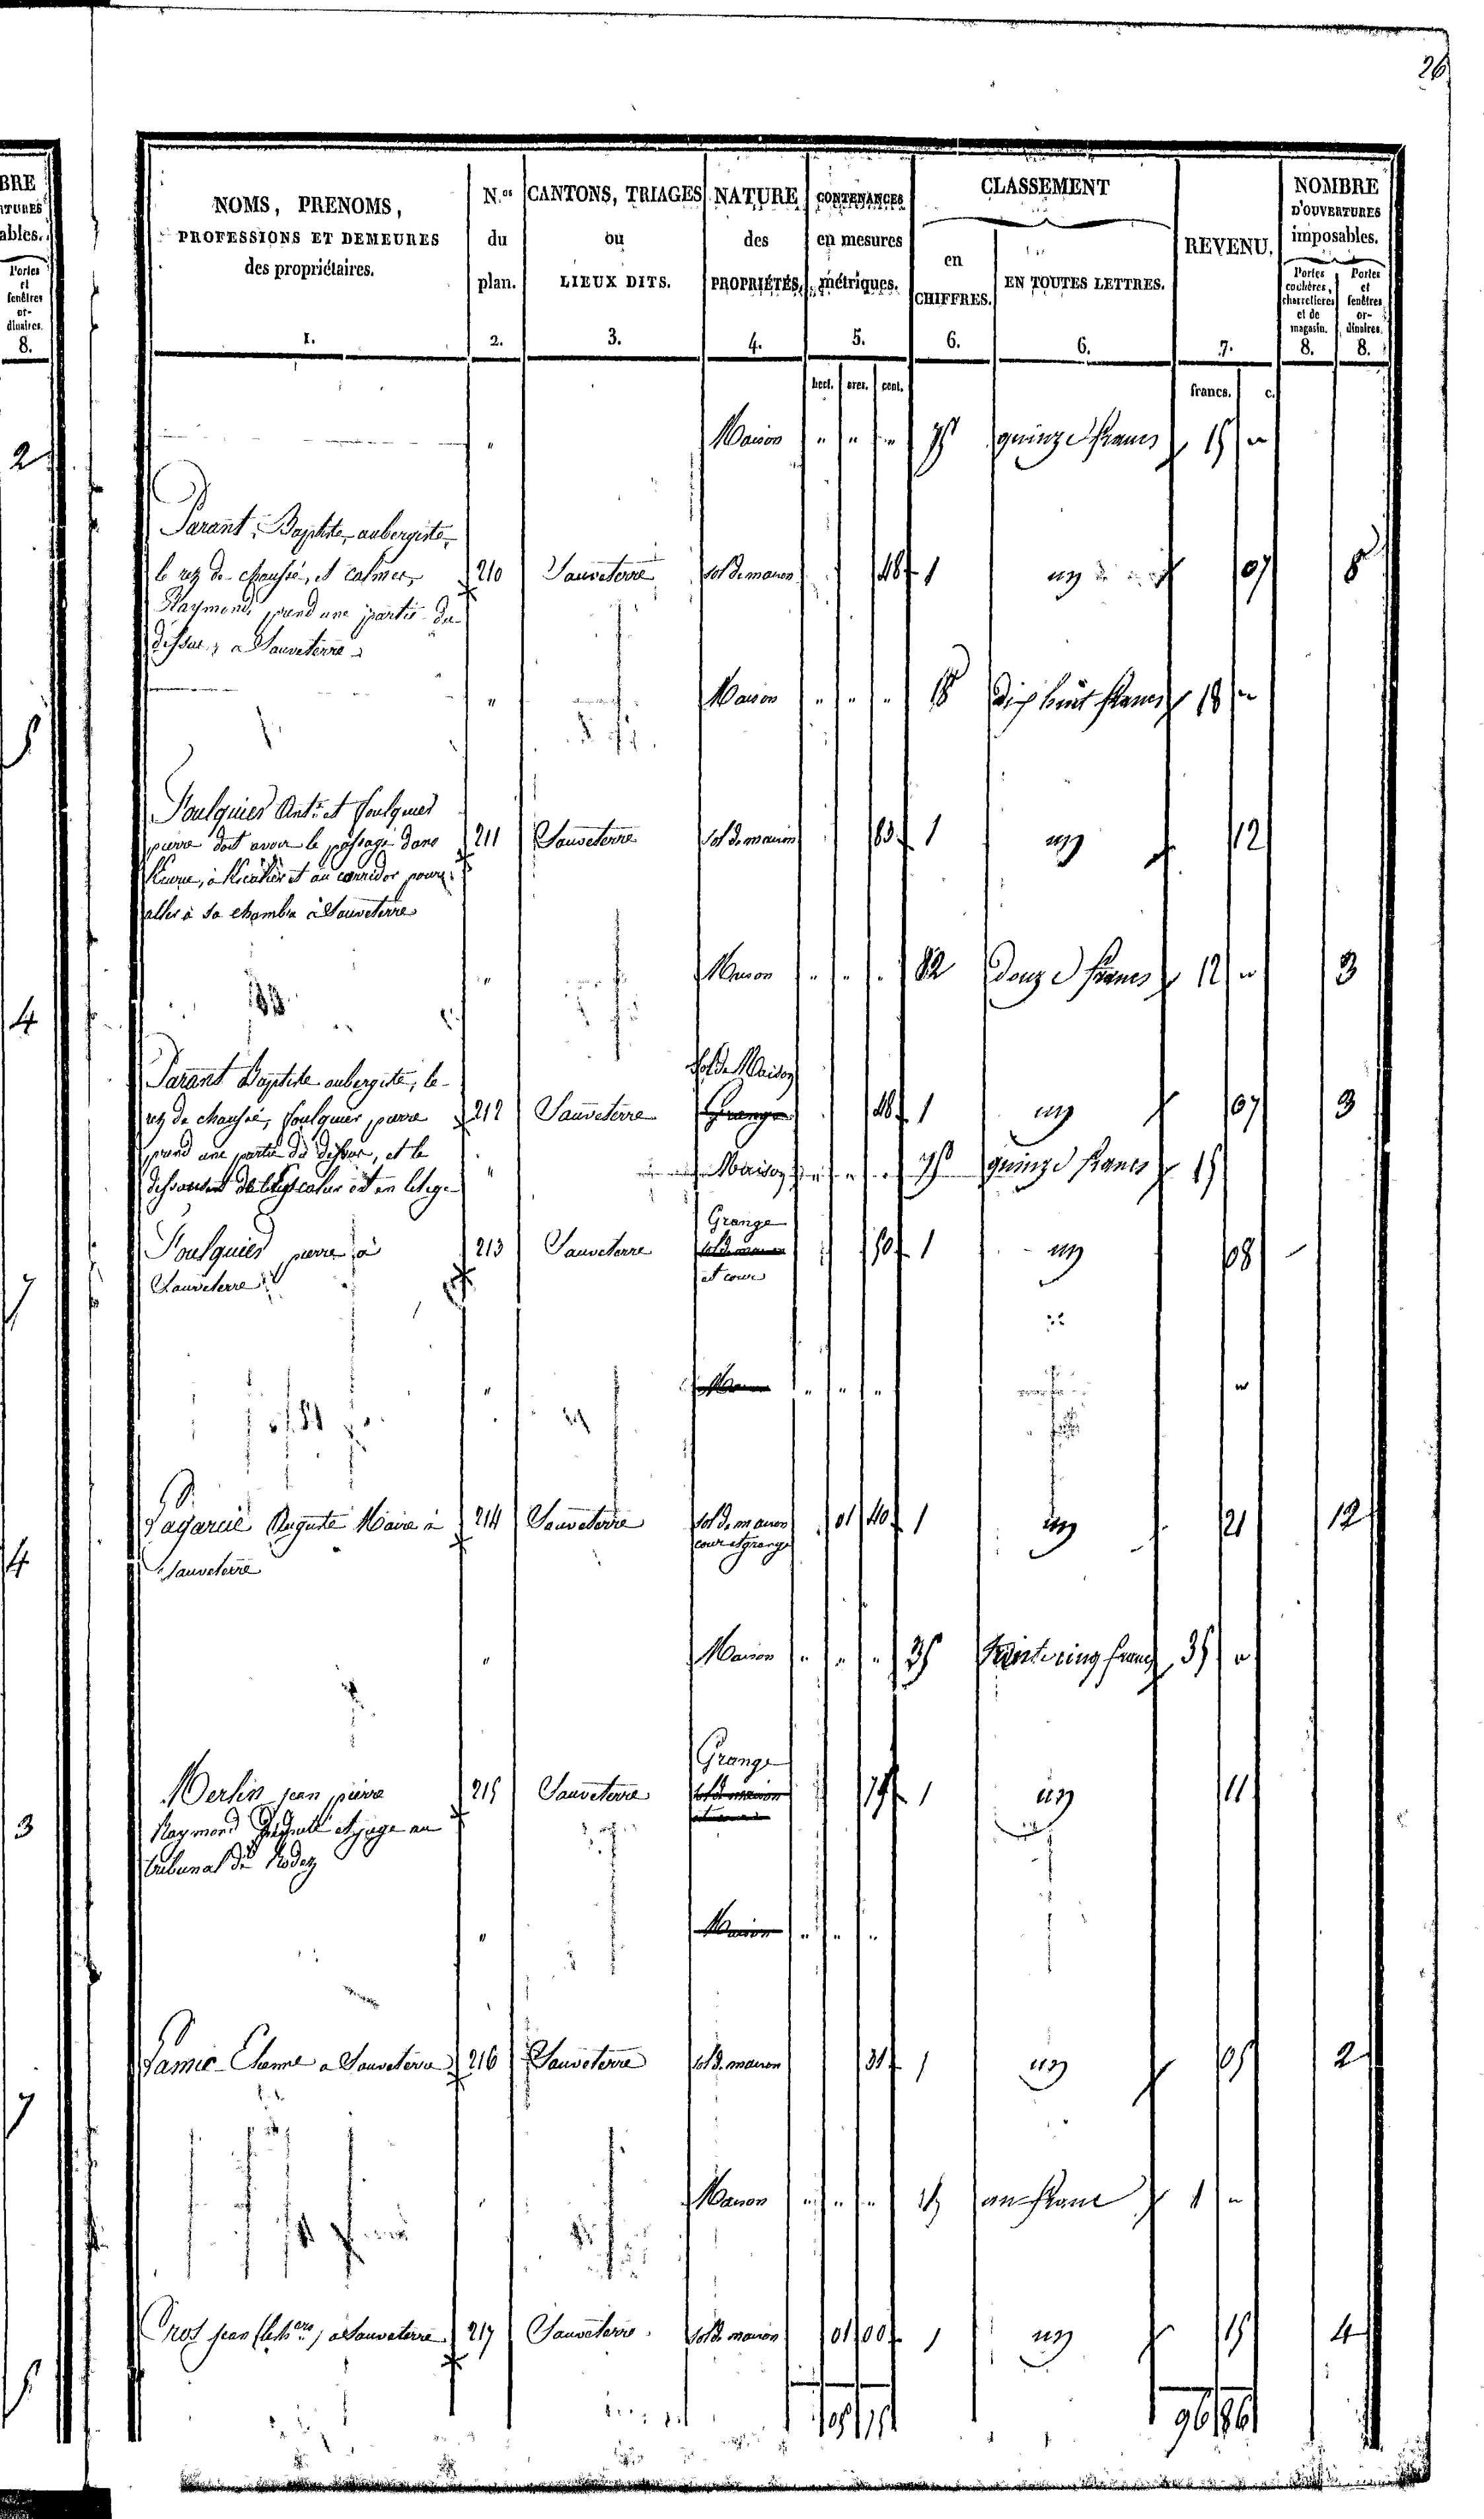 26
BRE
TURES
ables.
Portes
et
fenêtres
or-
dinaires.
8.
2
5
4
7
4
3
7
5
NOMS, PRENOMS,
PROFESSIONS ET DEMEURES
des propriétaires.
1.
N.os
du
plan.
2.
CANTONS, TRIAGES
ou
LIEUX DITS.
3.
NATURE
des
PROPRIÉTÉS.
4.
CONTENANCES
en mesures
métriques.
5.
CLASSEMENT
en
CHIFFRES.
6.
EN TOUTES LETTRES.
6.
REVENU.
7.
NOMBRE
D'OUVERTURES
imposables.
Portes
cochères,
charretières
et de
magasin.
8.
Portes
et
fenêtres
or-
dinaires.
8.
hect. ares. cent. francs. c.
" Maison " " " 15 quinze francs 15 "
Parant, Baptiste, aubergiste,
le rez de chaussé, et calmer, 210 Sauveterre sol de maison 48 1 un 07 8
Raymond, prend une partie du
dessus, a Sauveterre
" Maison " " " 18 dix huit francs 18 "
Foulquier Ant.e et foulquier
pierre doit avoir le passage dans 211 Sauveterre sol de maison 83 1 un 12
et au corridor pour
aller à sa chambre à Sauveterre
" Maison " " " 12 Douze francs 12 " 3
Parant Baptiste aubergiste, le sol de Maison
rez de chaussé, foulquier pierre 212 Sauveterre Grange 48 1 un 07 3
prend une partie du dessus, et le
" Maison " " " 15 quinze francs 15
Grange
Foulquier pierre à 213 Sauveterre sol de maison 50 1 un 08
Sauveterre et cour
" Maison " " " "
Lagarde Auguste Maire à 214 Sauveterre sol de maison 01 40 1 un 21 12
Sauveterre cour et grange
" Maison " " " 35 trente cinq francs 35 "
Grange
Merlin jean pierre 215 Sauveterre sol de maison 75 1 un 11
Raymond et juge au
tribunal de Rodez
" Maison " " "
Lamic Etienne a Sauveterre 216 Sauveterre sol de maison 31 1 un 05 2
" Maison " " " un franc 1 "
Cros jean a Sauveterre 217 Sauveterre sol de maison 01 00 1 un 15 4
05 75 96 86